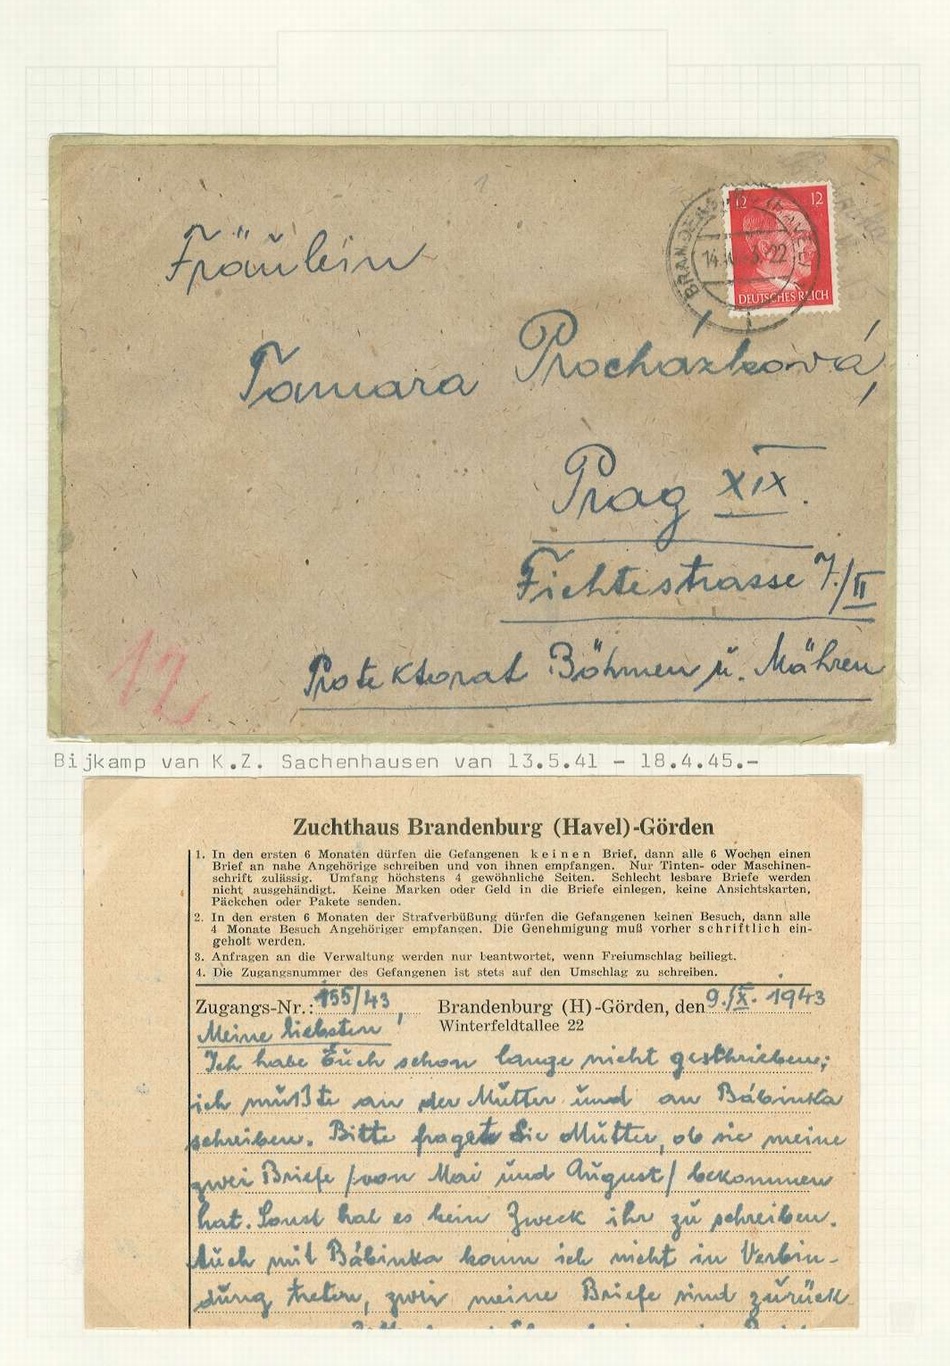 12 12
DEUTSCHES REICH
BRANDENBURG (HAVEL)
Fräulein
Tamara Procházková,
Prag XIX.
Fichtestrasse 7./II
Protektorat Böhmen u. Mähren
12
Bijkamp van K.Z. Sachenhausen van 13.5.41 - 18.4.45.-
Zuchthaus Brandenburg (Havel)-Görden
1. In den ersten 6 Monaten dürfen die Gefangenen keinen Brief, dann alle 6 Wochen einen
Brief an nahe Angehörige schreiben und von ihnen empfangen. Nur Tinten- oder Maschinen-
schrift zulässig. Umfang höchstens 4 gewöhnliche Seiten. Schlecht lesbare Briefe werden
nicht ausgehändigt. Keine Marken oder Geld in die Briefe einlegen, keine Ansichtskarten,
Päckchen oder Pakete senden.
2. In den ersten 6 Monaten der Strafverbüßung dürfen die Gefangenen keinen Besuch, dann alle
4 Monate Besuch Angehöriger empfangen. Die Genehmigung muß vorher schriftlich ein-
geholt werden.
3. Anfragen an die Verwaltung werden nur beantwortet, wenn Freiumschlag beiliegt.
4. Die Zugangsnummer des Gefangenen ist stets auf den Umschlag zu schreiben.
Zugangs-Nr.: 155/43, Brandenburg (H)-Görden, den 9./X. 1943
Winterfeldtallee 22
Meine liebsten!
Ich habe Euch schon lange nicht geschrieben;
ich müßte an der Mutter und an Bábinka
schreiben. Bitte fraget Sie Mutter, ob sie meine
zwei Briefe /von Mai und August/ bekommen
hat. Sonst hat es kein Zweck ihr zu schreiben.
Auch mit Bábinka kann ich nicht in Verbin-
dung treten, zwei meine Briefe sind zurück